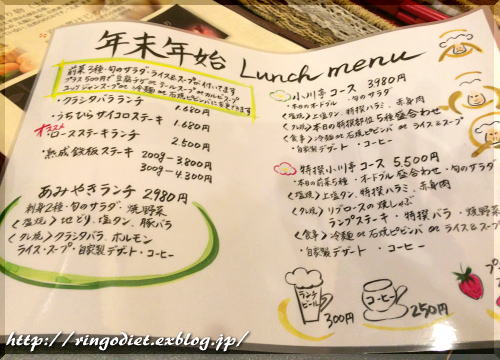 年末年始 Lunch menu
前菜3種・旬のサラダ・ライス&スープが付いてます
プラス500円で豆腐チゲorテールスープorカルビスープ
ユッケジャンスープor冷麺or石焼ピビンバに変更できます
・クラシタバラランチ 1.680円
・うちひらサイコロステーキ 1.680円
オススメ
・ロースステーキランチ 2.500円
・熟成鉄板ステーキ 200g-3.800円
300g-4.300円
あみやきランチ 2.980円
刺身2種・旬のサラダ・焼野菜
〈塩焼〉地どり、塩タン、豚バラ
〈タレ焼〉クラシタバラ、ホルモン
ライス・スープ・自家製デザート・コーヒー
小川亭コース 3980円
・本日のオードブル・旬のサラダ
〈塩焼〉上塩タン、特撰ハラミ、赤身肉
〈タレ焼〉本日の特撰部位5種盛合わせ
〈食事〉冷麺or石焼ピビンバorライス&スープ
・自家製デザート・コーヒー
特撰小川亭コース 5,500円
・本日の前菜5種・オードブル盛合わせ・旬のサラダ
〈塩焼〉上塩タン、特撰ハラミ、赤身肉
〈タレ焼〉リブロースの焼しゃぶ
ランプステーキ・特撰バラ・焼野菜
〈食事〉冷麺or石焼ピビンバorライス&スープ
・自家製デザート・コーヒー
ランチビール
300円
コーヒー
250円
http://ringodiet.exblog.jp/